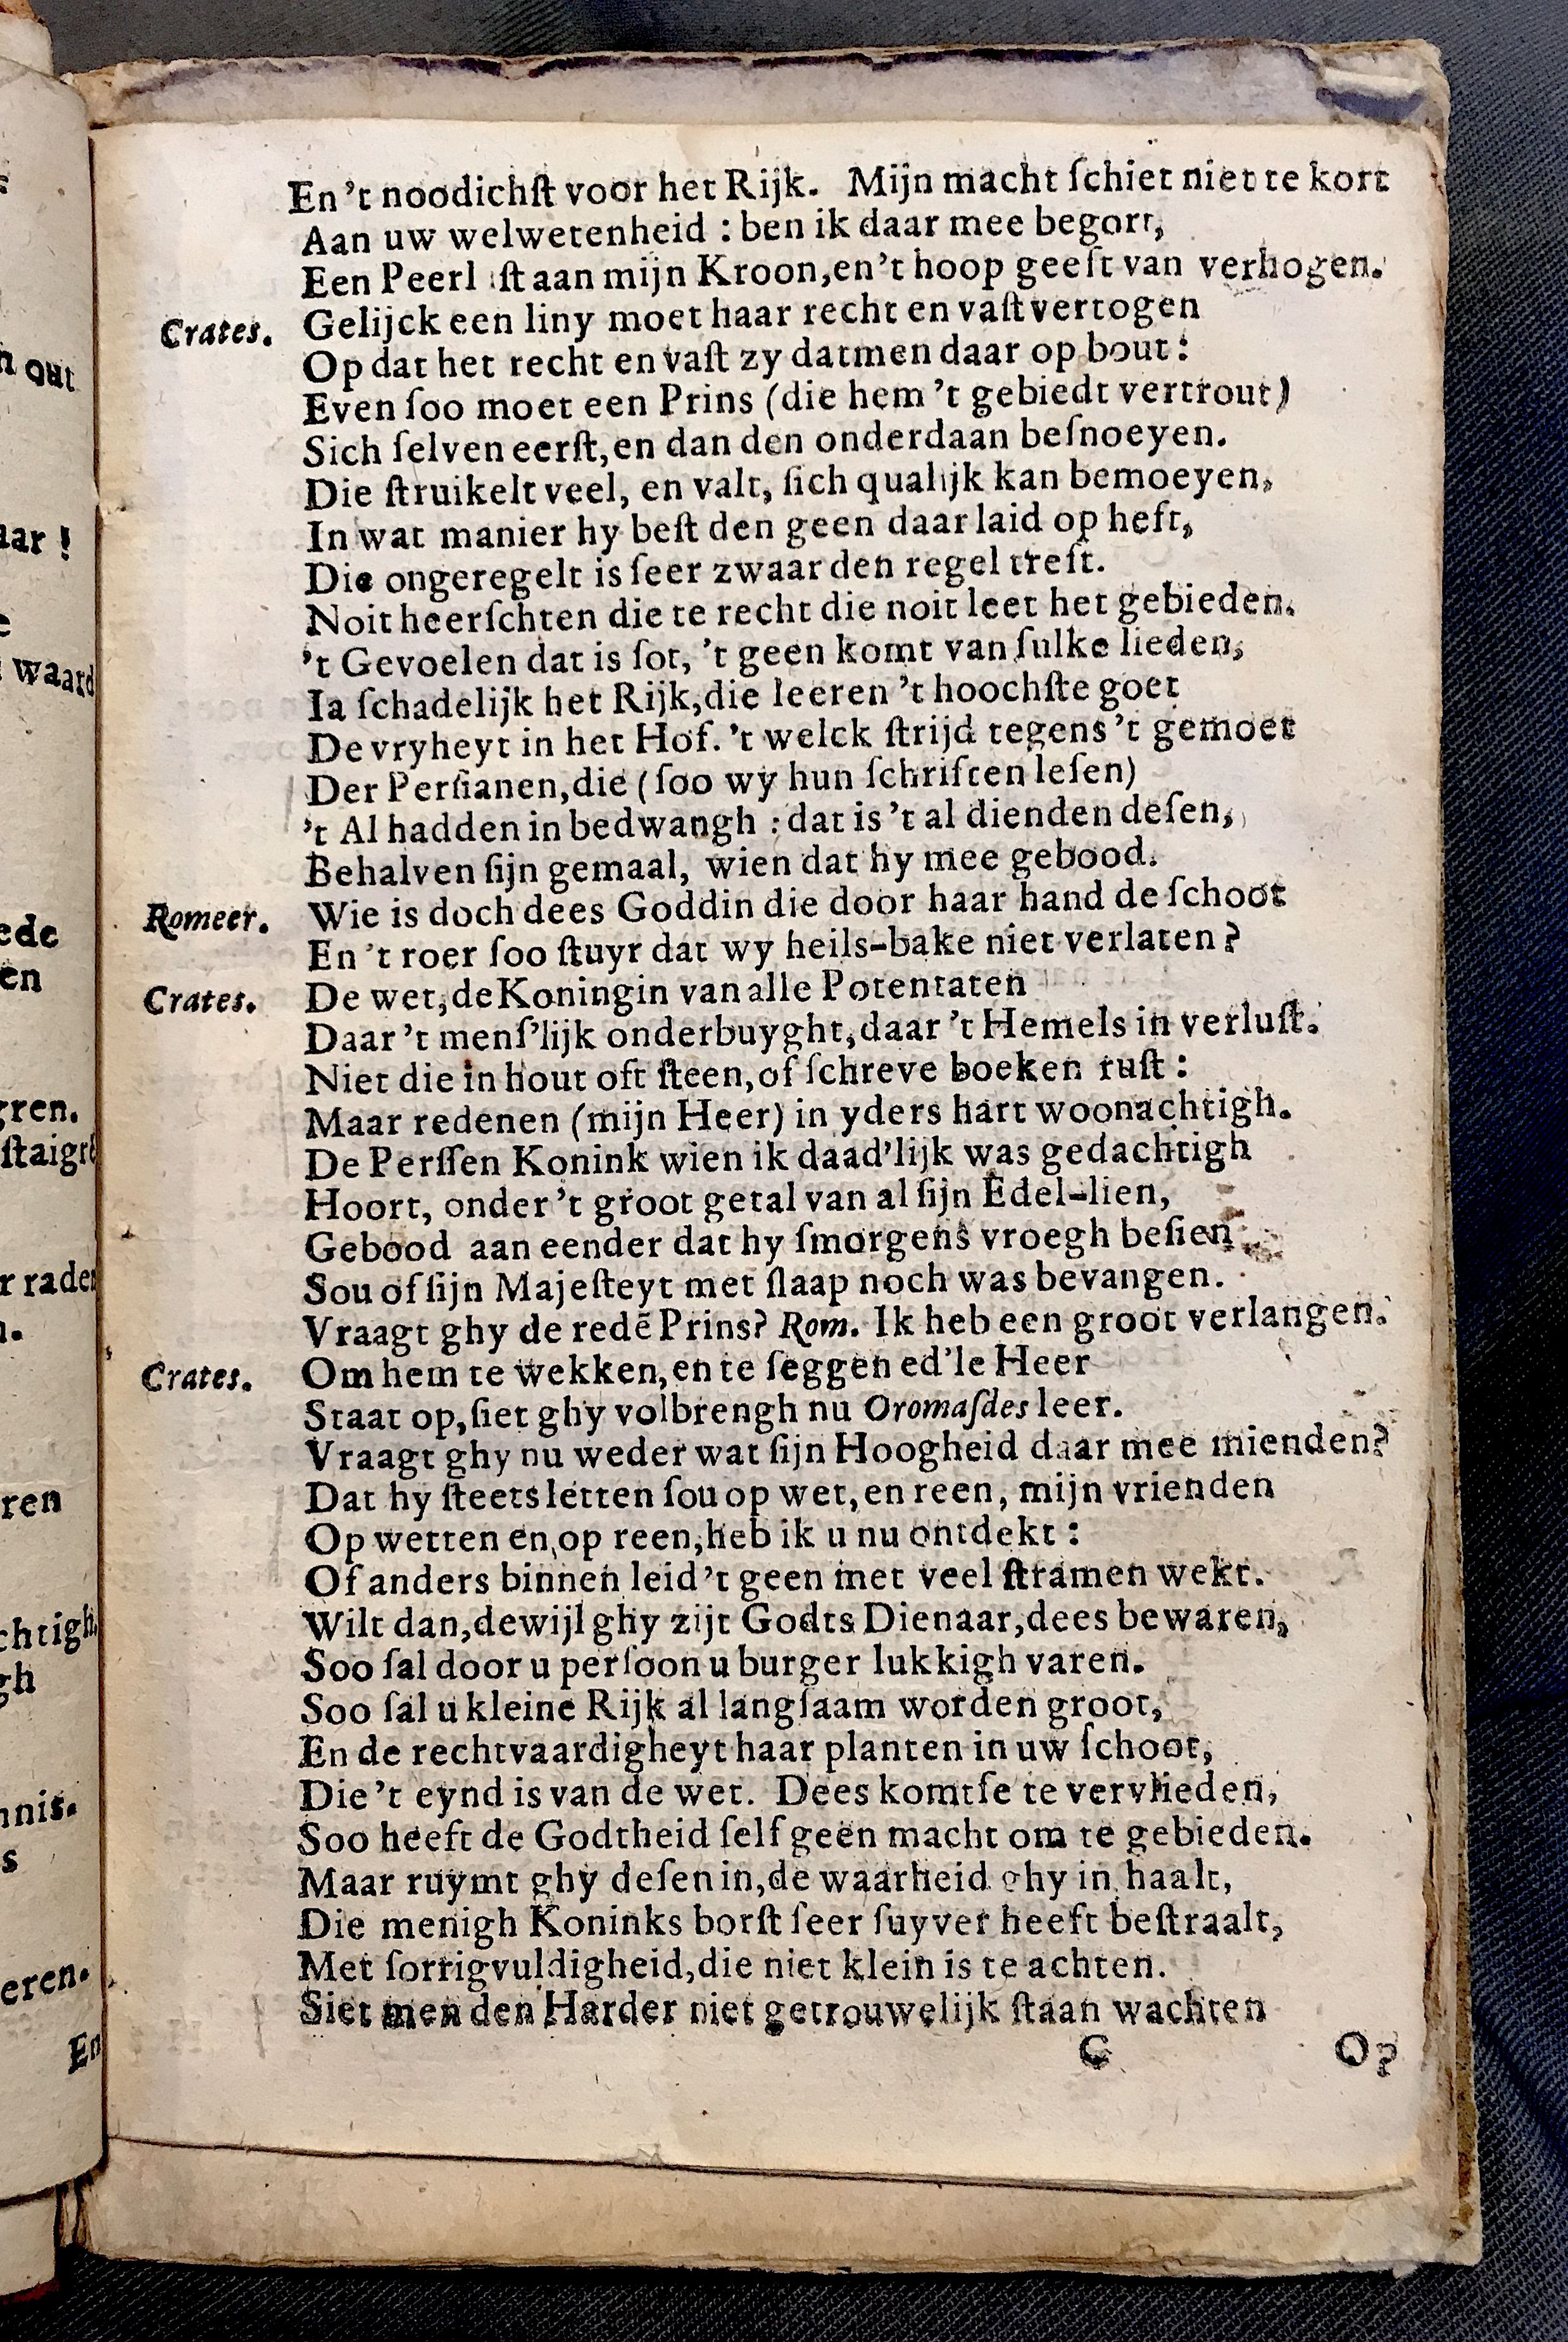 En 't noodichſt voor het Rijk. Mijn macht ſchiet niet te kort
Aan uw welwetenheid : ben ik daar mee begort,
Een Peerl iſt aan mijn Kroon, en 't hoop geeft van verhogen.
Crates. Gelijck een liny moet haar recht en vaſt vertogen
Op dat het recht en vaſt zy datmen daar op bout :
Even ſoo moet een Prins (die hem 't gebiedt vertrout)
Sich ſelven eerſt, en dan den onderdaan beſnoeyen.
Die ſtruikelt veel, en valt, ſich qualijk kan bemoeyen,
In wat manier hy beſt den geen daar laid op heft,
Die ongeregelt is ſeer zwaar den regel treft.
Noit heerſchten die te recht die noit leet het gebieden.
't Gevoelen dat is ſot, 't geen komt van ſulke lieden,
Ia ſchadelijk het Rijk, die leeren 't hoochſte goet
De vryheyt in het Hof. 't welck ſtrijd tegens 't gemoet
Der Perſianen, die (ſoo wy hun ſchriften leſen)
't Al hadden in bedwangh : dat is 't al dienden deſen,
Behalven ſijn gemaal, wien dat hy mee gebood.
Romeer. Wie is doch dees Goddin die door haar hand de ſchoot
En 't roer ſoo ſtuyr dat wy heils-bake niet verlaten ?
Crates. De wet, de Koningin van alle Potentaten
Daar 't menſ'lijk onderbuyght, daar 't Hemels in verluſt.
Niet die in hout oft ſteen, of ſchreve boeken ruſt :
Maar redenen (mijn Heer) in yders hart woonachtigh.
De Perſſen Konink wien ik daad'lijk was gedachtigh
Hoort, onder 't groot getal van al ſijn Edel-lien,
Gebood aan eender dat hy ſmorgens vroegh beſien
Sou of ſijn Majeſteyt met ſlaap noch was bevangen.
Vraagt ghy de redē Prins? Rom. Ik heb een groot verlangen.
Crates. Om hem te wekken, en te ſeggen ed'le Heer
Staat op, ſiet ghy volbrengh nu Oromaſdes leer.
Vraagt ghy nu weder wat ſijn Hoogheid daar mee mienden?
Dat hy ſteets letten ſou op wet, en reen, mijn vrienden
Op wetten en op reen, heb ik u nu ontdekt :
Of anders binnen leid 't geen met veel ſtramen wekt.
Wilt dan, dewijl ghy zijt Godts Dienaar, dees bewaren,
Soo ſal door u perſoon u burger lukkigh varen.
Soo ſal u kleine Rijk al langſaam worden groot,
En de rechtvaardigheyt haar planten in uw ſchoot,
Die 't eynd is van de wet. Dees komtſe te vervlieden,
Soo heeft de Godtheid ſelf geen macht om te gebieden.
Maar ruymt ghy deſen in, de waarheid ghy in haalt,
Die menigh Koninks borſt ſeer ſuyver heeft beſtraalt,
Met ſorrigvuldigheid, die niet klein is te achten.
Siet men den Harder niet getrouwelijk ſtaan wachten
C Op